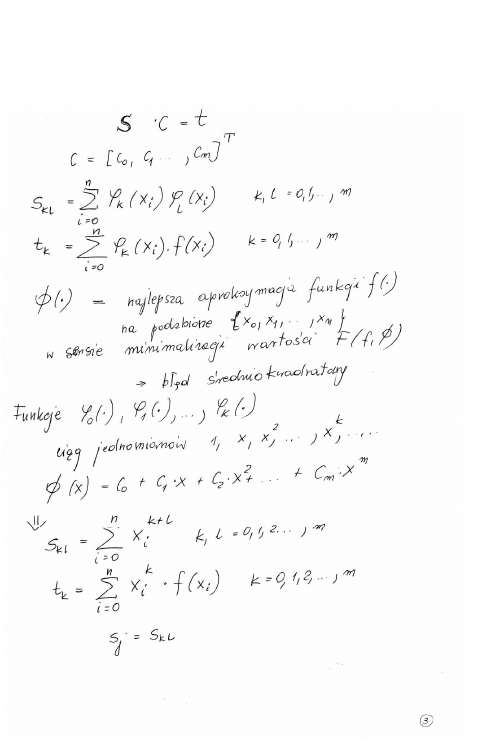 S · C = t
C = [C₀, C₁ ... , Cₘ]ᵀ
S_kl = Σ_{i=0}^{n} φ_k(x_i) φ_l(x_i)    k, l = 0,1,... , m
t_k = Σ_{i=0}^{n} φ_k(x_i) · f(x_i)    k = 0,1,... , m
ϕ(·) = najlepsza aproksymacja funkcji f(·)
na podzbiorze {x₀, x₁, ... , xₙ}
w sensie minimalizacji wartości F(f, ϕ)
→ błąd średniokwadratowy
Funkcje φ₀(·), φ₁(·), ... , φ_k(·)
ciąg jednomianów 1, x, x², ... , x^k, ....
ϕ(x) = C₀ + C₁·x + C₂·x² + ... + Cₘ·x^m
⇓
S_kl = Σ_{i=0}^{n} x_i^{k+l}    k, l = 0,1,2... , m
t_k = Σ_{i=0}^{n} x_i^k · f(x_i)    k = 0,1,2,... , m
S_j = S_kl
③